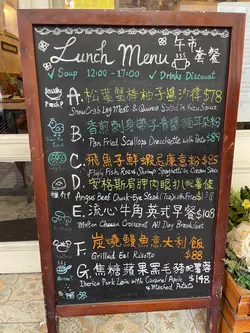 Lunch Menu 午市套餐
✓ Soup 12:00 - 17:00 ✓ Drinks Discount
A. 松葉蟹棒柚子醬沙律 $78
Snow Crab Leg Meat & Quinoa Salad In Yuzu Sauce
B. 香煎刺身帶子青醬貓耳朵粉
Pan Fried Scallops Orecchiette with Pesto $89
C. 飛魚子鮮蝦忌廉意粉 $85
Flying Fish Roe & Shrimp Spaghetti in Cream Sauce
推介
D. 安格斯肩胛肉眼扒配薯條
Angus Beef Chuck-Eye Steak With Fries
E. 流心牛角英式早餐 $108
Molten Cheese Croissant All Day Breakfast
F. 炭燒鰻魚意大利飯
Grilled Eel Risotto $88
G. 焦糖蘋果黑毛豬配薯蓉
Iberico Pork Loin with Caramel Apple & Mashed Potato $148